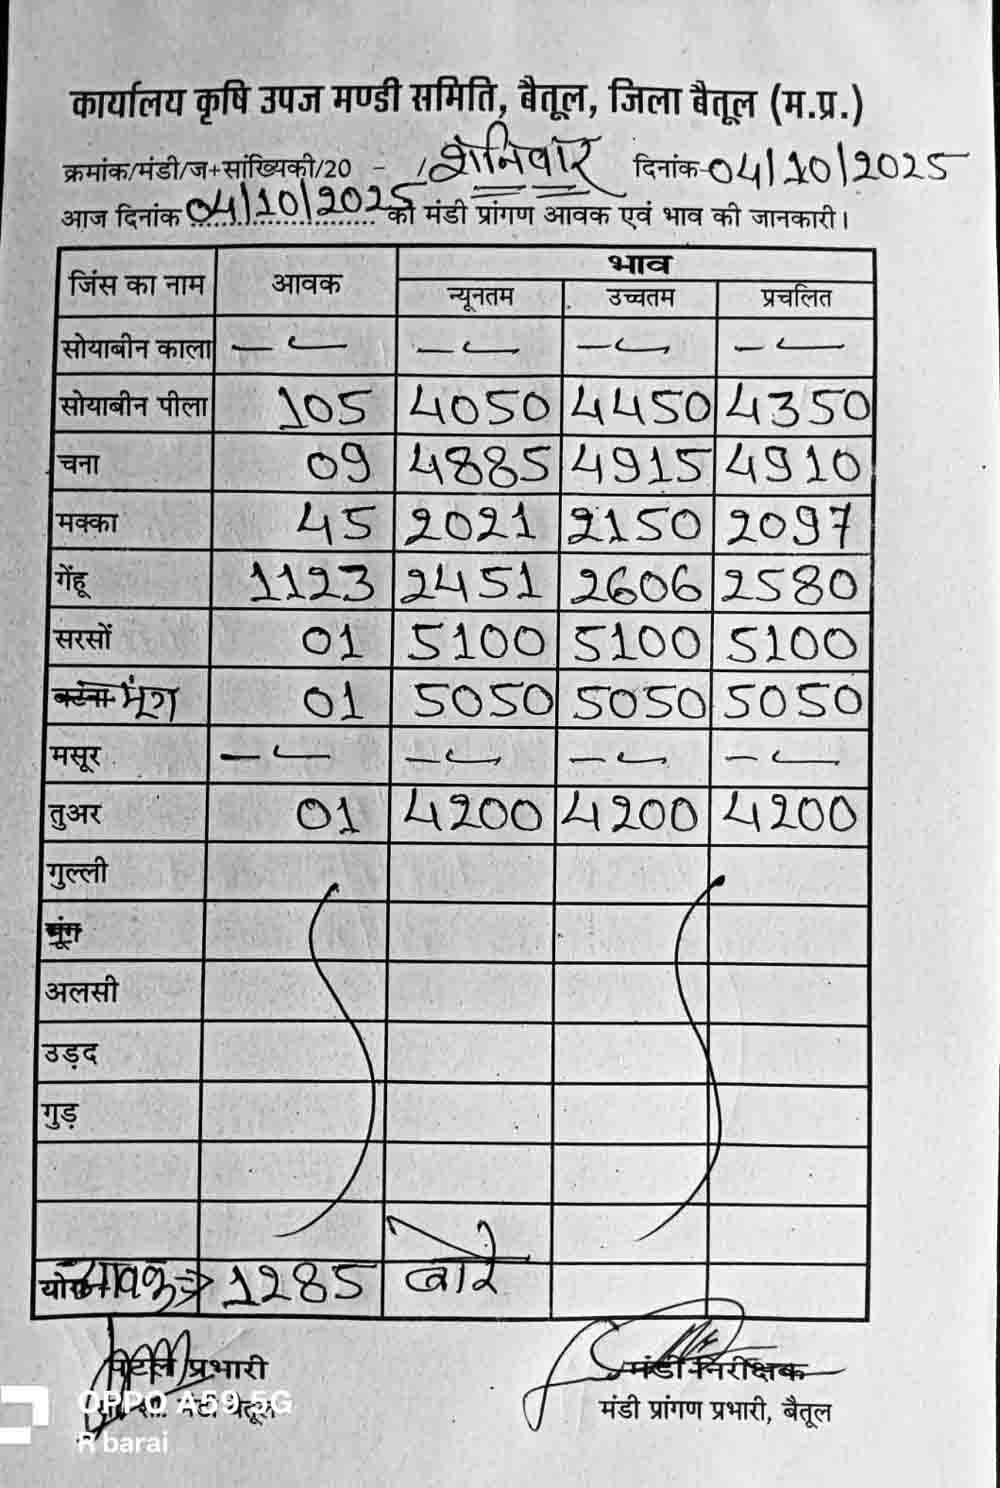 कार्यालय कृषि उपज मण्डी समिति, बैतूल, जिला बैतूल (म.प्र.)
क्रमांक/मंडी/ज+सांख्यिकी/20 - / शनिवार दिनांक-04/10/2025
आज दिनांक 04/10/2025 को मंडी प्रांगण आवक एवं भाव की जानकारी।
जिंस का नाम आवक भाव
न्यूनतम उच्चतम प्रचलित
सोयाबीन काला - - - - - - - -
सोयाबीन पीला 105 4050 4450 4350
चना 09 4885 4915 4910
मक्का 45 2021 2150 2097
गेंहू 1123 2451 2606 2580
सरसों 01 5100 5100 5100
मूंग 01 5050 5050 5050
मसूर - - - - - - - -
तुअर 01 4200 4200 4200
गुल्ली
मूंग
अलसी
उड़द
गुड़
आवक => 1285 बोरे
प्रभारी मंडी निरीक्षक
मंडी बैतूल मंडी प्रांगण प्रभारी, बैतूल
OPPO A59 5G
R barai